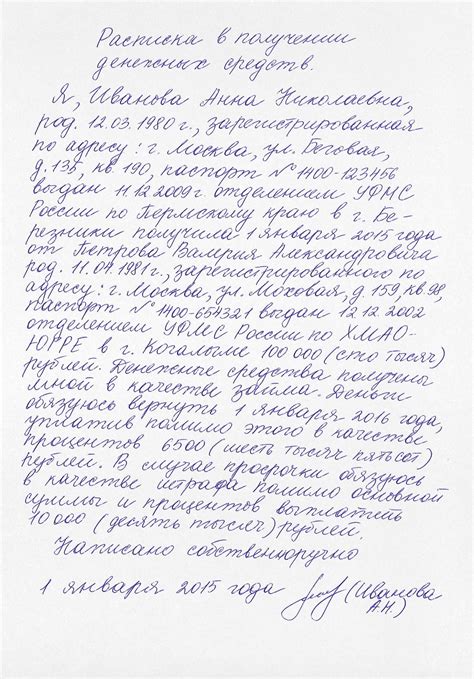 Расписка в получении
денежных средств.
Я, Иванова Анна Николаевна,
род. 12.03.1980 г., зарегистрированная
по адресу: г. Москва, ул. Беговая,
д. 135, кв. 190, паспорт № 1400-123456
выдан 11 12 2009 г. отделением УФМС
России по Пермскому краю в г. Бе-
резники получила 1 января 2015 года
от Петрова Валерия Александровича
род. 11.04.1981 г., зарегистрированного по
адресу: г. Москва, ул. Моховая, д. 159, кв. 98,
паспорт № 1400-654321 выдан 12 12 2002
отделением УФМС России по ХМАО-
ЮГРЕ в г. Когалыме 100 000 (сто тысяч)
рублей. Денежные средства получены
мной в качестве займа. Деньги
обязуюсь вернуть 1 января 2016 года,
уплатив помимо этого в качестве
процентов 6500 (шесть тысяч пятьсот)
рублей. В случае просрочки обязуюсь
в качестве штрафа помимо основной
суммы и процентов выплатить
10 000 (десять тысяч) рублей.
Написано собственноручно
1 января 2015 года (Иванова
А.Н.)